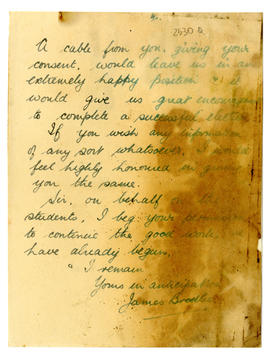 2630 a
A cable from you, giving your
consent, would leave us in an
extremely happy position & it
would give us great encourage
to complete a successful
If you wish any information
of any sort whatsoever, I would
feel highly honoured in giving
you the same.
Sir, on behalf of the
students, I beg your permission
to continue the good work,
have already begun.
I remain
Yours in anticipation
James